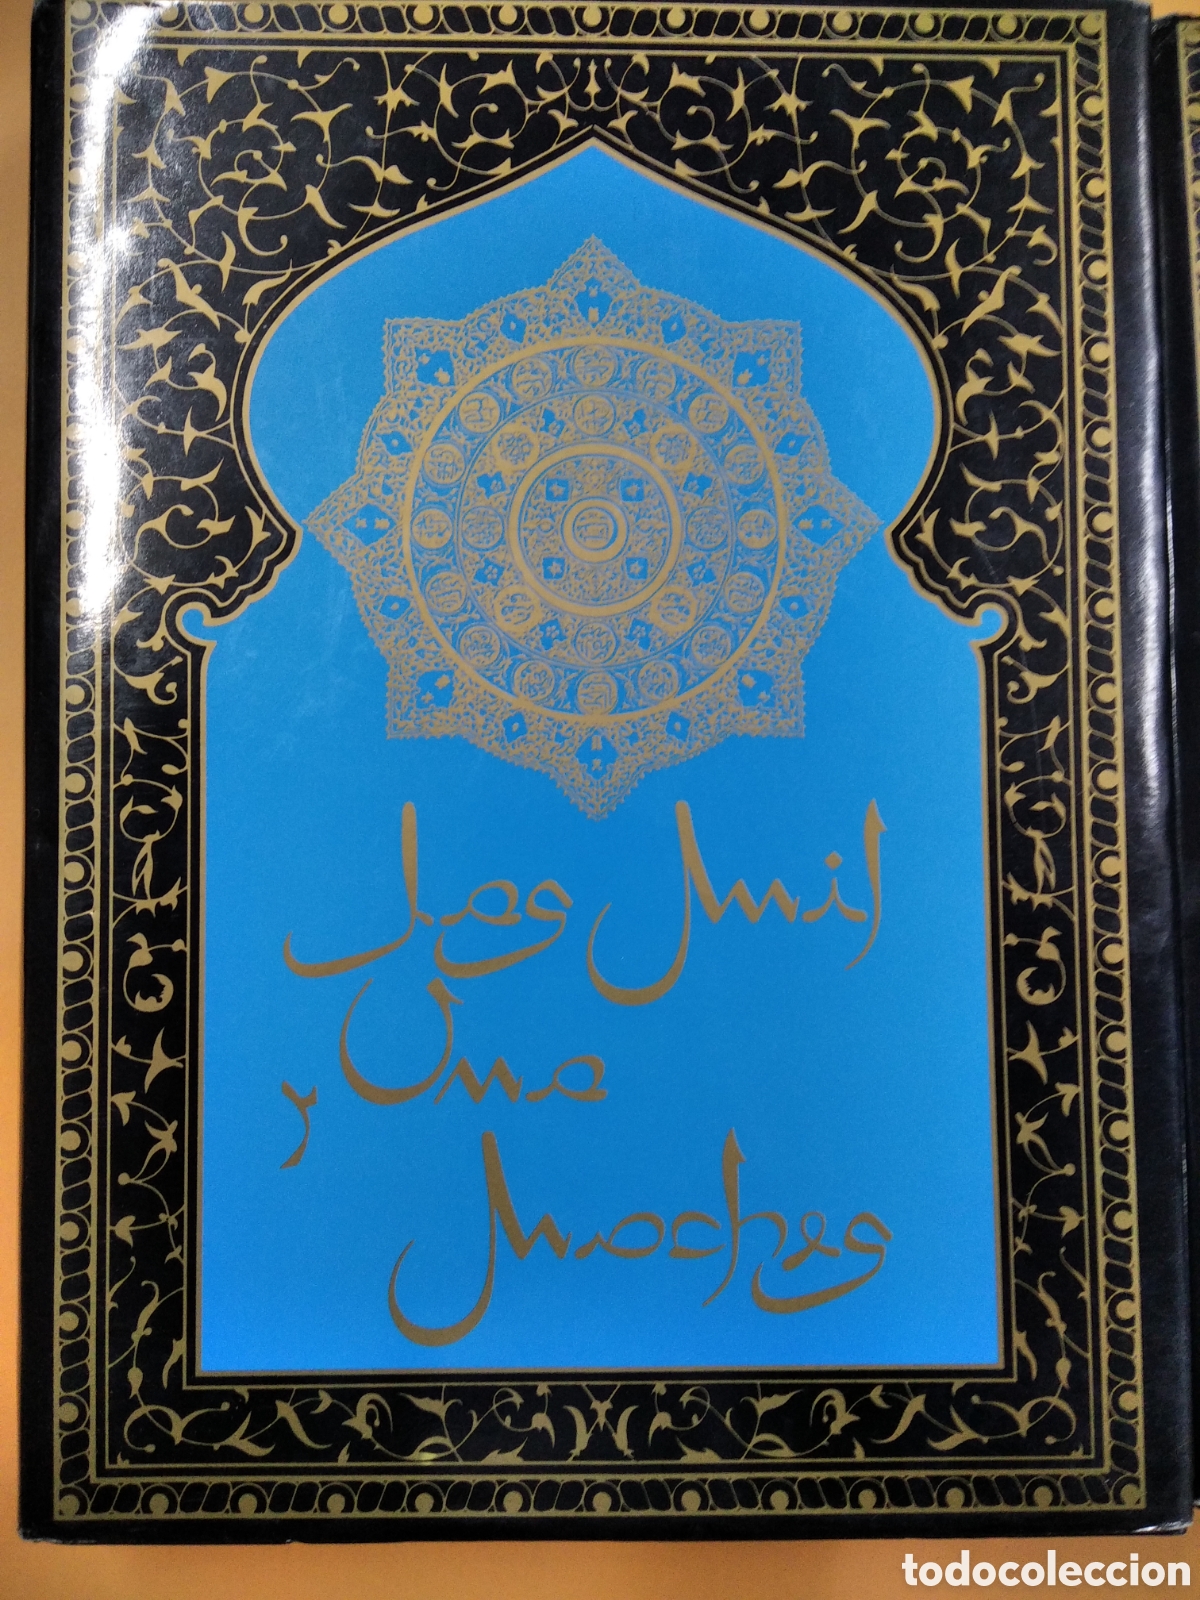 Las Mil
y Una
Noches
todocoleccion